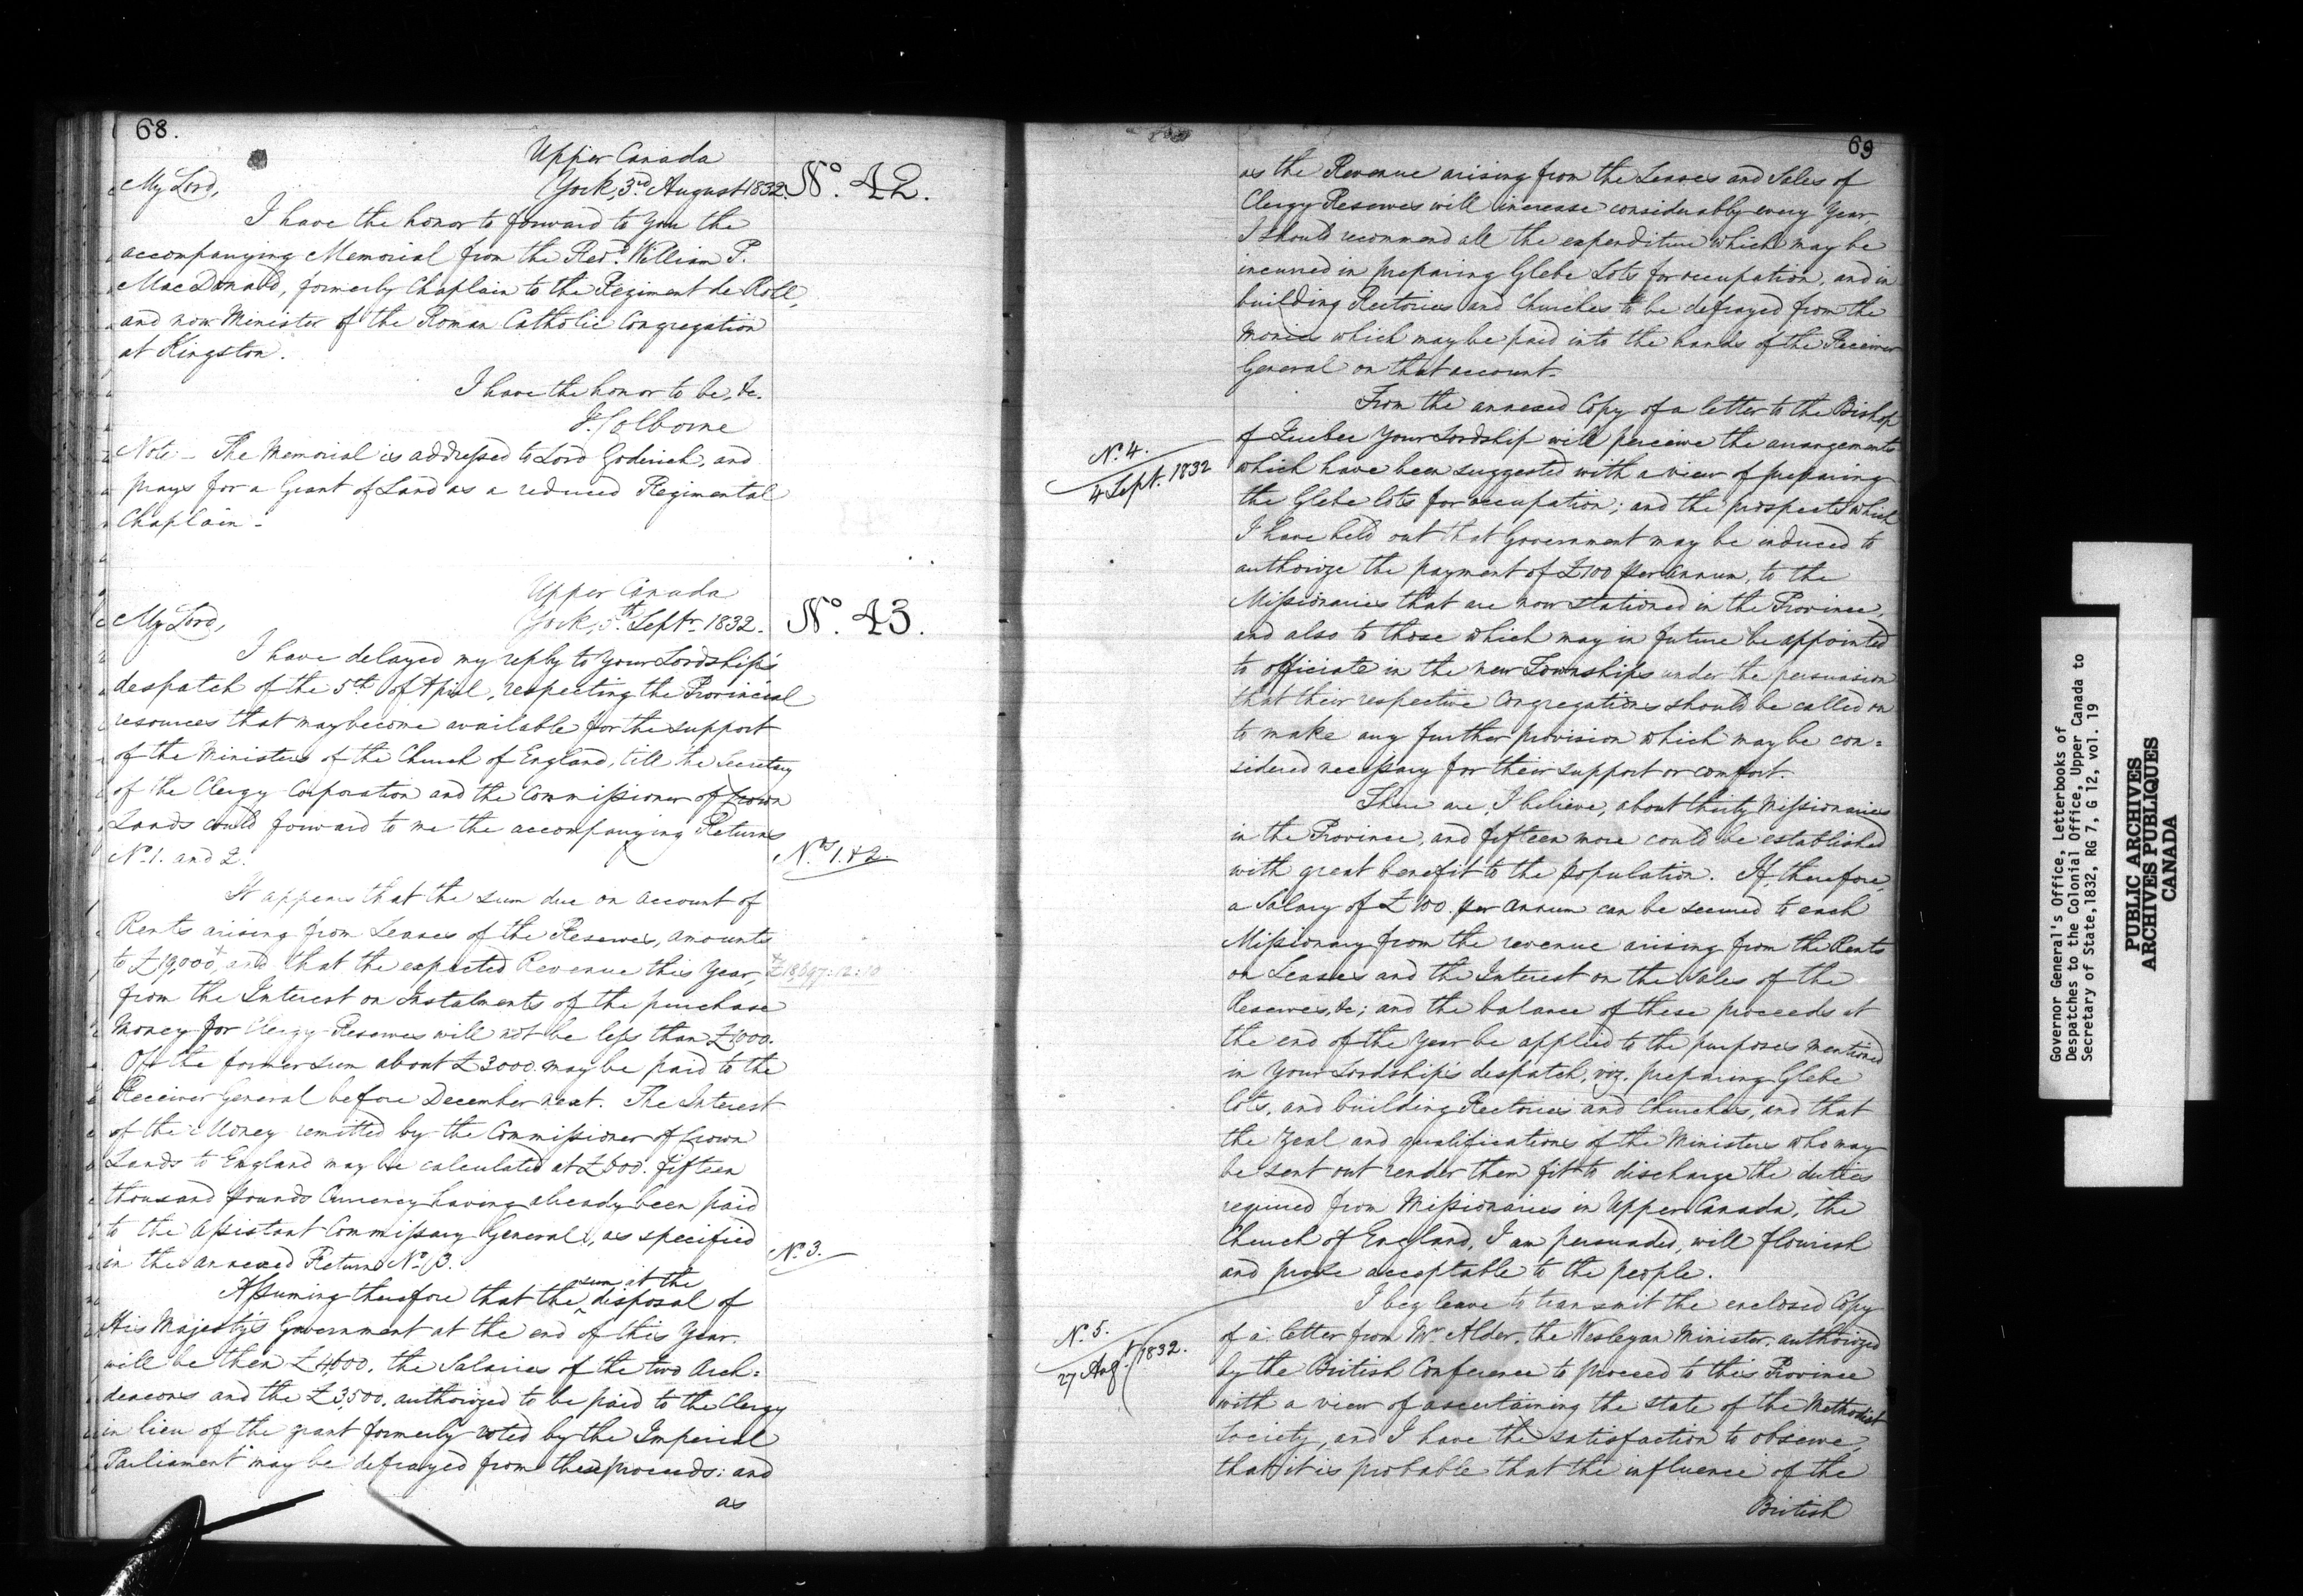 68.
Upper Canada
My Lord, York, 3rd August 1832. No. 42.
I have the honor to forward to you the
accompanying Memorial from the Revd. William P.
MacDonald, formerly Chaplain to the Regiment de Roll,
and now Minister of the Roman Catholic Congregation
at Kingston.
I have the honor to be, &c.
J. Colborne
Note – The Memorial is addressed to Lord Goderich, and
prays for a Grant of Land as a reduced Regimental
Chaplain –
Upper Canada
My Lord, York, 5th Septr. 1832. No. 43.
I have delayed my reply to Your Lordship's
despatch of the 5th of April, respecting the Provincial
resources that may become available for the support
of the Ministers of the Church of England, till the Secretary
of the Clergy Corporation and the Commissioner of Crown
Lands could forward to me the accompanying Returns
No. 1. and 2. Nos. 1. & 2
It appears that the sum due on account of
Rents arising from Leases of the Reserves, amounts
to £19,000+, and that the expected Revenue this Year, +£18,697:12:10
from the Interest on Instalments of the purchase
Money for Clergy Reserves will not be less than £1000.
Of the former sum about £3000. may be paid to the
Receiver General before December next. The Interest
of the Money remitted by the Commissioner of Crown
Lands to England may be calculated at £500. fifteen
thousand pounds Currency having already been paid
to the Assistant Commissary General, as specified
in the annexed Return No. 3. No. 3.
Assuming therefore that the sum at the disposal of
His Majesty's Government at the end of this Year
will be then £4500, the Salaries of the two Arch=
deacons and the £3,500, authorized to be paid to the Clergy
in lieu of the grant formerly voted by the Imperial
Parliament may be defrayed from these proceeds: and
as
69
as the Revenue arising from the Leases and Sales of
Clergy Reserves will increase considerably every Year,
I should recommend all the expenditure which may be
incurred in preparing Glebe Lots for occupation, and in
building Rectories and Churches to be defrayed from the
Monies which may be paid into the hands of the Receiver
General on that account.
From the annexed Copy of a letter to the Bishop
of Quebec Your Lordship will perceive the arrangements
No. 4.
4 Sept. 1832
which have been suggested with a view of preparing
the Glebe lots for occupation; and the prospects which
I have held out that Government may be induced to
authorize the payment of £100 per Annum, to the
Missionaries that are now stationed in the Province,
and also to those which may in future be appointed
to officiate in the new Townships under the persuasion
that their respective Congregations should be called on
to make any further provision which may be con=
sidered necessary for their support or comfort.
There are, I believe, about thirty Missionaries
in the Province, and fifteen more could be established
with great benefit to the population. If, therefore,
a Salary of £100. per Annum can be secured to each
Missionary from the revenue arising from the Rents
on Leases and the Interest on the Sales of the
Reserves, &c; and the balance of these proceeds at
the end of the Year be applied to the purposes mentioned
in Your Lordship's despatch, viz. preparing Glebe
lots, and building Rectories and Churches, and that
the Zeal and qualifications of the Ministers who may
be sent out render them fit to discharge the duties
required from Missionaries in Upper Canada, the
Church of England, I am persuaded, will flourish
and prove acceptable to the people.
I beg leave to transmit the enclosed Copy
No. 5.
27 Augt. 1832.
of a letter from Mr. Alder, the Wesleyan Minister, authorized
by the British Conference to proceed to this Province
with a view of ascertaining the state of the Methodist
Society, and I have the satisfaction to observe,
that it is probable that the influence of the
British
Governor General's Office, Letterbooks of
Despatches to the Colonial Office, Upper Canada to
Secretary of State, 1832, RG 7, G 12, vol. 19
PUBLIC ARCHIVES
ARCHIVES PUBLIQUES
CANADA